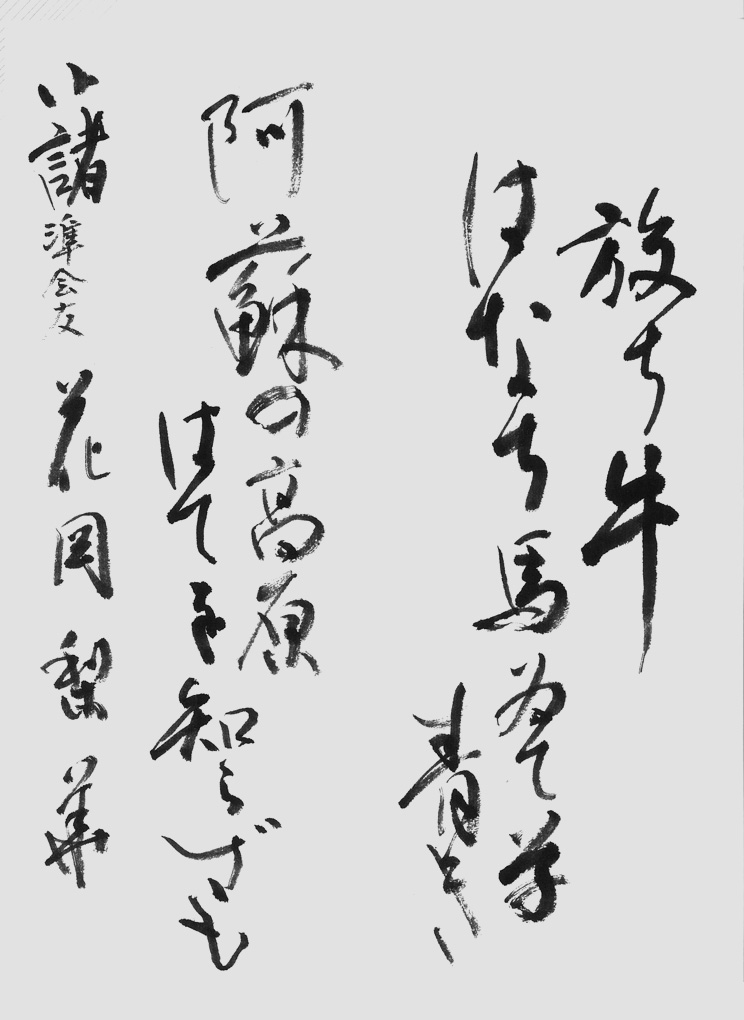 放ち牛
はなち馬ゐて草
青き
阿蘇の高原
はても知らずも
小諸 準会友 花岡梨華